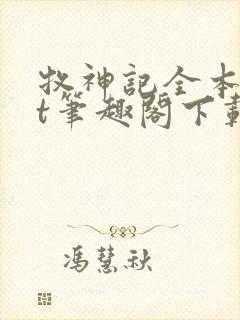 牧神記全本
t筆趣閣下載
馮慧秋